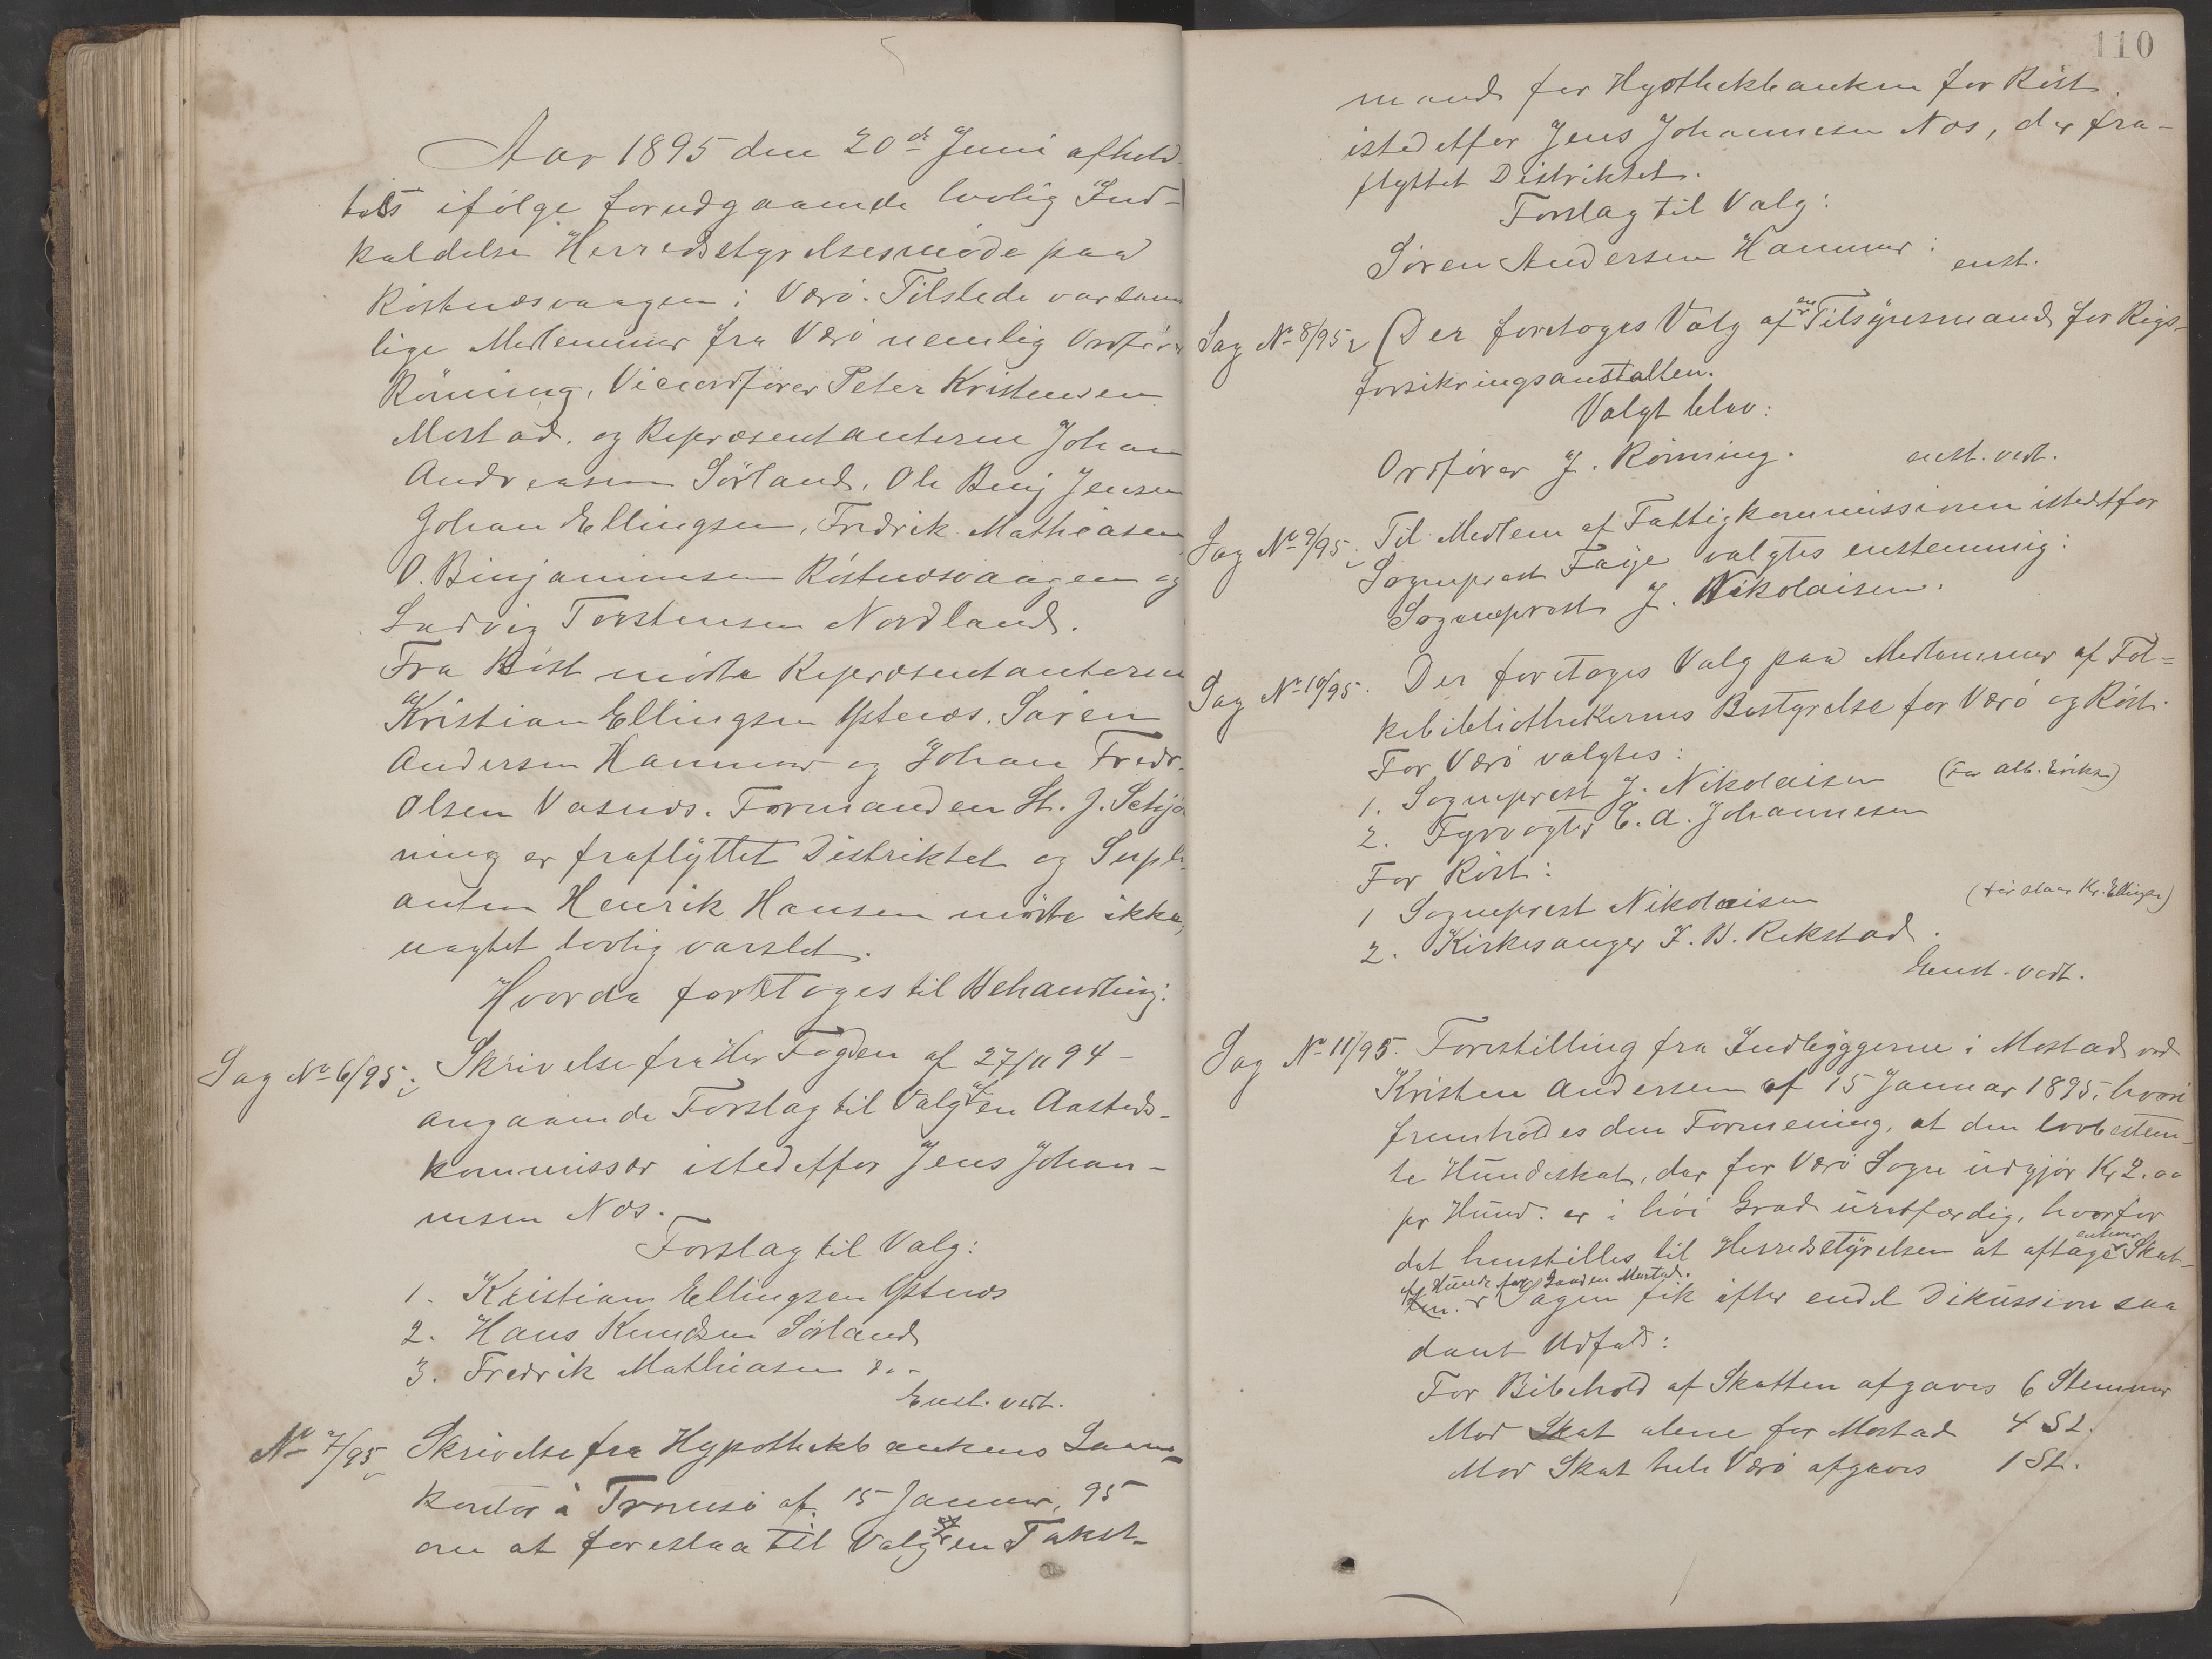 Aar 1895 den 20de Juni afhold
tes ifølge forudgaaende lovlig Ind-
kaldelse Herredsstyrelsesmøde paa
Røstnæsvaagen i Værø. Tilstede var sam
lige Medlemmer fra Værø nemlig Ordfører
Rönning, Viceordfører Peter Kristensen
Mostad, og Repræsentanterne Johan
Andreasen Sørland, Ole Benj Jensen
Johan Ellingsen, Fredrik Mathiasen
O. Binjaminsen Røstnæsvaagen og
Ludvig Torstensen Nordland.
Fra Røst mødte Repræsentanterne
Kristian Ellingsen Ystnæs, Søren
Andersen Hammer og Johan Fredr.
Olsen Vasnæs. Formanden St. J. Schjø
ning er fraflyttet Distriktet og Supli
anten Henrik Hansen mødte ikke,
uagtet lovlig varslet.
Hvorda foretoges til Behandling:
Sag No 6/95. Skrivelse fra Hr Fogden af 27/11 94 -
angaaende Forslag til Valg af en Aasteds-
kommissær istedetfor Jens Johan-
nesen Næs.
Forslag til Valg:
1. Kristian Ellingsen Ystnæs
2. Hans Knudsen Sørland
3. Fredrik Mathiasen do -
Enst. vedt.
No 7/95 Skrivelse fra Hypothekbankens Laane-
kontor i Tromsø af 15 Januar, 95
om at foreslaa til Valg af en Takst-
110
mand for Hypothekbanken for Røst
istedetfor Jens Johannesen Næs, der fra-
flyttet Distriktet.
Forslag til Valg:
Søren Andersen Hammer: enst.
Sag No 8/95 Der foretoges Valg af en Tilsynsmand for Rigs-
forsikringsanstalten.
Valgt blev:
Ordfører J. Rönning. enst. vedt.
Sag No 9/95. Til Medlem af Fattigkommissionen istedetfor
Sogneprest Faye valgtes enstemmig:
Sogneprest J. Nikolaisen.
Sag No 10/95. Der foretoges Valg paa Medlemmer af Fol=
kebibliothekernes Bestyrelse for Værø og Røst.
For Værø valgtes:
1. Sogneprest J. Nikolaisen (For Alb. Eriksen)
2. Fyrvogter E. A. Johannesen
For Røst:
1 Sogneprest Nikolaisen (før staar Kr. Ellingsen)
2. Kirkesanger F. B. Rekstad.
Eenst. vedt.
Sag No 11/95. Forestilling fra Indbyggerne i Mostad ved
Kristen Andersen af 15 Januar 1895, hvori
fremholdes den Formening, at den lovbestem-
te Hundeskat, der for Værø Sogn udgjør Kr 2.00
pr Hund. er i høi Grad uretfærdig, hvorfor
det henstilles til Herredsstyrelsen at aftage enhver Skat-
af Hunde for Gaarden Mostad.
ten. Sagen fik efter endel Dikussion saa
dant Udfald:
For Bibehold af Skatten afgaves 6 Stemmer
Mod Skat alene for Mostad 4 St.
Mod Skat hele Værø afgaves 1 St.